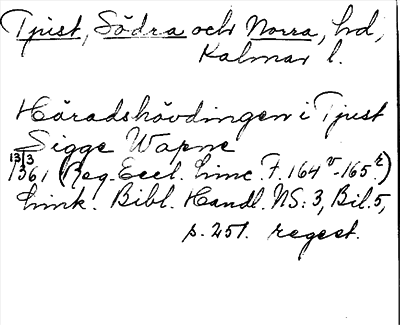 Tjust, Södra och Norra, hd,
Kalmar l.
Häradshövdingen i Tjust
Sigge Wapne
13/3
1361 (Reg. Eccl. Linc. F. 164 v-165 r.)
Link. Bibl. Handl. NS: 3, Bil. 5,
p. 251. regest.